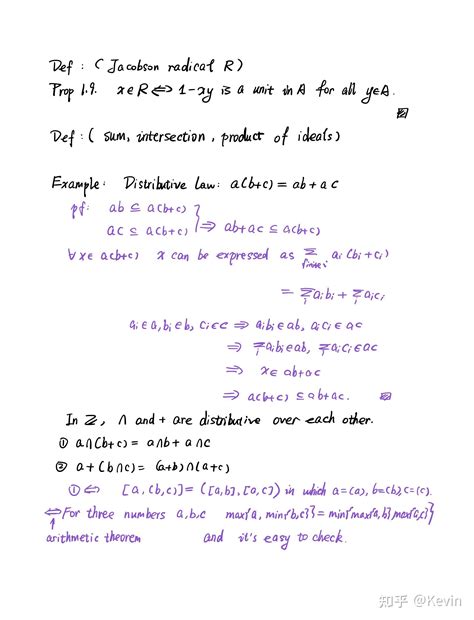 Def : ( Jacobson radical R )
Prop 1.9. x∈R ⟺ 1-xy is a unit in A for all y∈A.
Def : ( sum, intersection, product of ideals)
Example: Distributive law: a(b+c) = ab + ac
pf: ab ⊆ a(b+c)
ac ⊆ a(b+c) } ⟹ ab+ac ⊆ a(b+c)
∀x∈ a(b+c) x can be expressed as Σ_{finite i} ai(bi+ci)
= Σ_i aibi + Σ_i aici
ai∈a, bi∈b, ci∈c ⟹ aibi∈ab, aici∈ac
⟹ Σ_i aibi∈ab, Σ_i aici∈ac
⟹ x∈ ab+ac
⟹ a(b+c) ⊆ ab+ac.
In Z, ∩ and + are distributive over each other.
① a∩(b+c) = a∩b + a∩c
② a+(b∩c) = (a+b)∩(a+c)
① ⟺ [a,(b,c)] = ([a,b],[a,c]) in which a=(a), b=(b), c=(c).
⟺ For three numbers a,b,c max{a, min{b,c}} = min{max{a,b}, max{a,c}}
arithmetic theorem and it's easy to check.
知乎 @Kevin